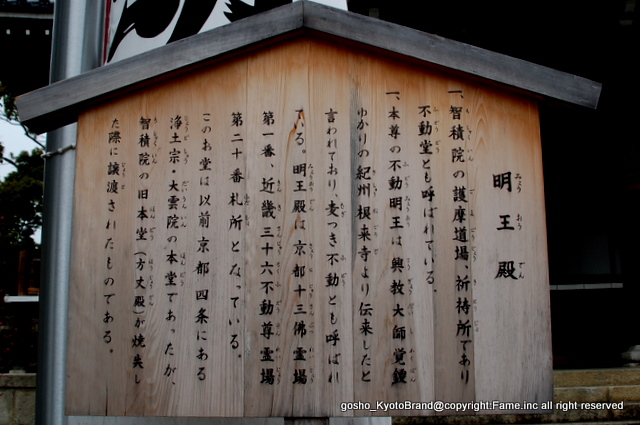 明王殿
一、智積院の護摩道場、祈祷所であり
不動堂とも呼ばれている。
一、本尊の不動明王は興教大師覚鑁
ゆかりの紀州根来寺より伝来したと
言われており、麦つき不動とも呼ばれ
ている。明王殿は京都十三佛霊場
第一番、近畿三十六不動尊霊場
第二十番札所となっている。
このお堂は以前京都四条にある
浄土宗・大雲院の本堂であったが、
智積院の旧本堂(方丈殿)が焼失し
た際に譲渡されたものである。
gosho_KyotoBrand@copyright.Fame.inc all right reserved